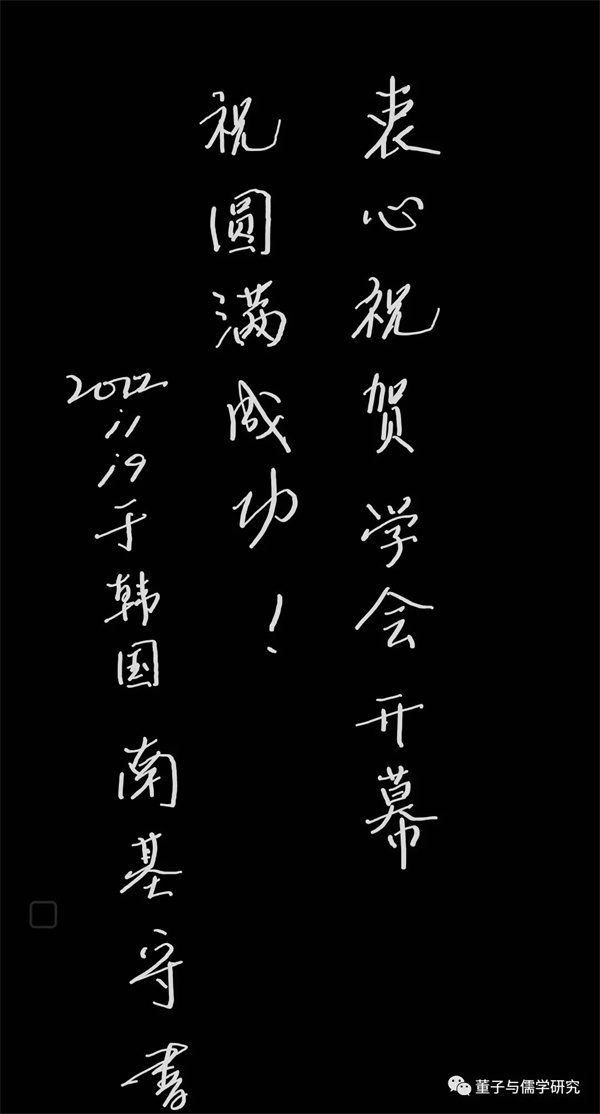 衷心祝贺学会开幕
祝圆满成功！
2022
11
19于韩国 南基守书
董子与儒学研究